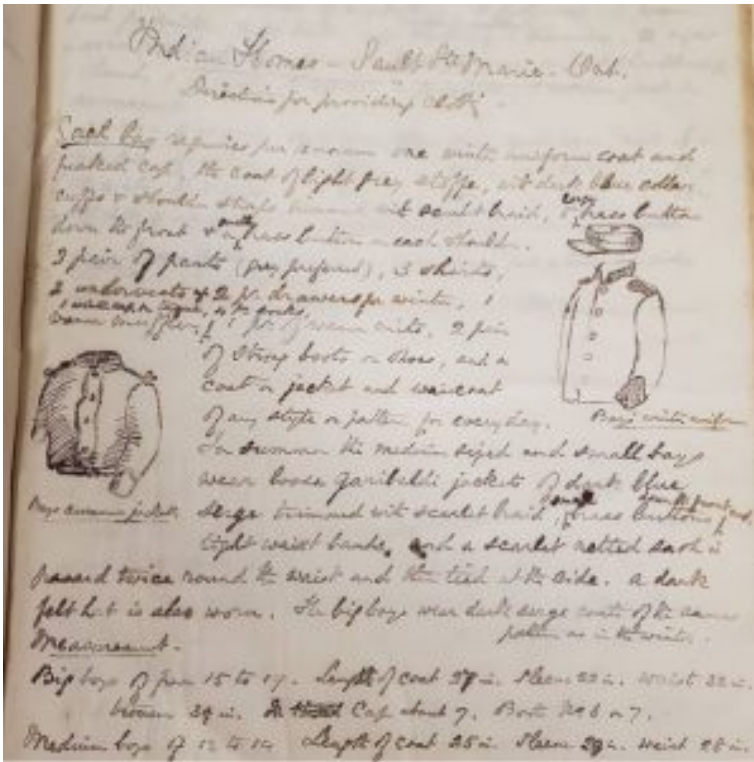 Indian Homes - Sault Ste Marie - Ont.
Directions for providing cloth
Each boy requires per annum one winter uniform coat and
peaked cap, the coat of light grey stoffe, with dark blue collar
cuffs & shoulder straps trimmed with scarlet braid, 6 large brass buttons
down the front & a small brass button on each shoulder.
2 pair of pants (grey preferred), 3 shirts,
2 undervests & 2 pr. drawers for winter, 1
socks,
warm muffler, 1 pr. of warm mits, 2 pair
of strong boots or shoes, and a
coat or jacket and waistcoat
of any style or pattern for everyday.
Boys winter uniform
For summer the medium sized and small boys
wear loose Garibaldi jackets of dark blue
Boys summer jacket
serge trimmed with scarlet braid, small brass buttons down the front and
tight waist bands, and a scarlet netted sash is
passed twice round the waist and then tied at the side. A dark
felt hat is also worn. The big boys wear dark serge coats of the same
pattern as in the winter.
Measurement.
Big boys of from 15 to 17. Length of coat 27 in. Sleeve 22 in. Waist 32 in.
Cap about 7. Boots No 6 or 7.
Medium boys of 12 to 14 Length of coat 25 in. Sleeve in. Waist 28 in.